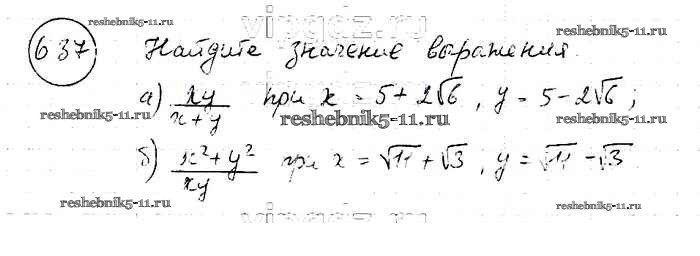 reshebnik5-11.ru
vipgdz.com
637. Найдите значение выражения.
reshebnik5-11.ru
а) xy / x+y при x = 5 + 2√6, y = 5 - 2√6;
reshebnik5-11.ru
reshebnik5-11.ru
reshebnik5-11.ru
б) x² + y² / xy при x = √11 + √3, y = √11 - √3
reshebnik5-11.ru
reshebnik5-11.ru